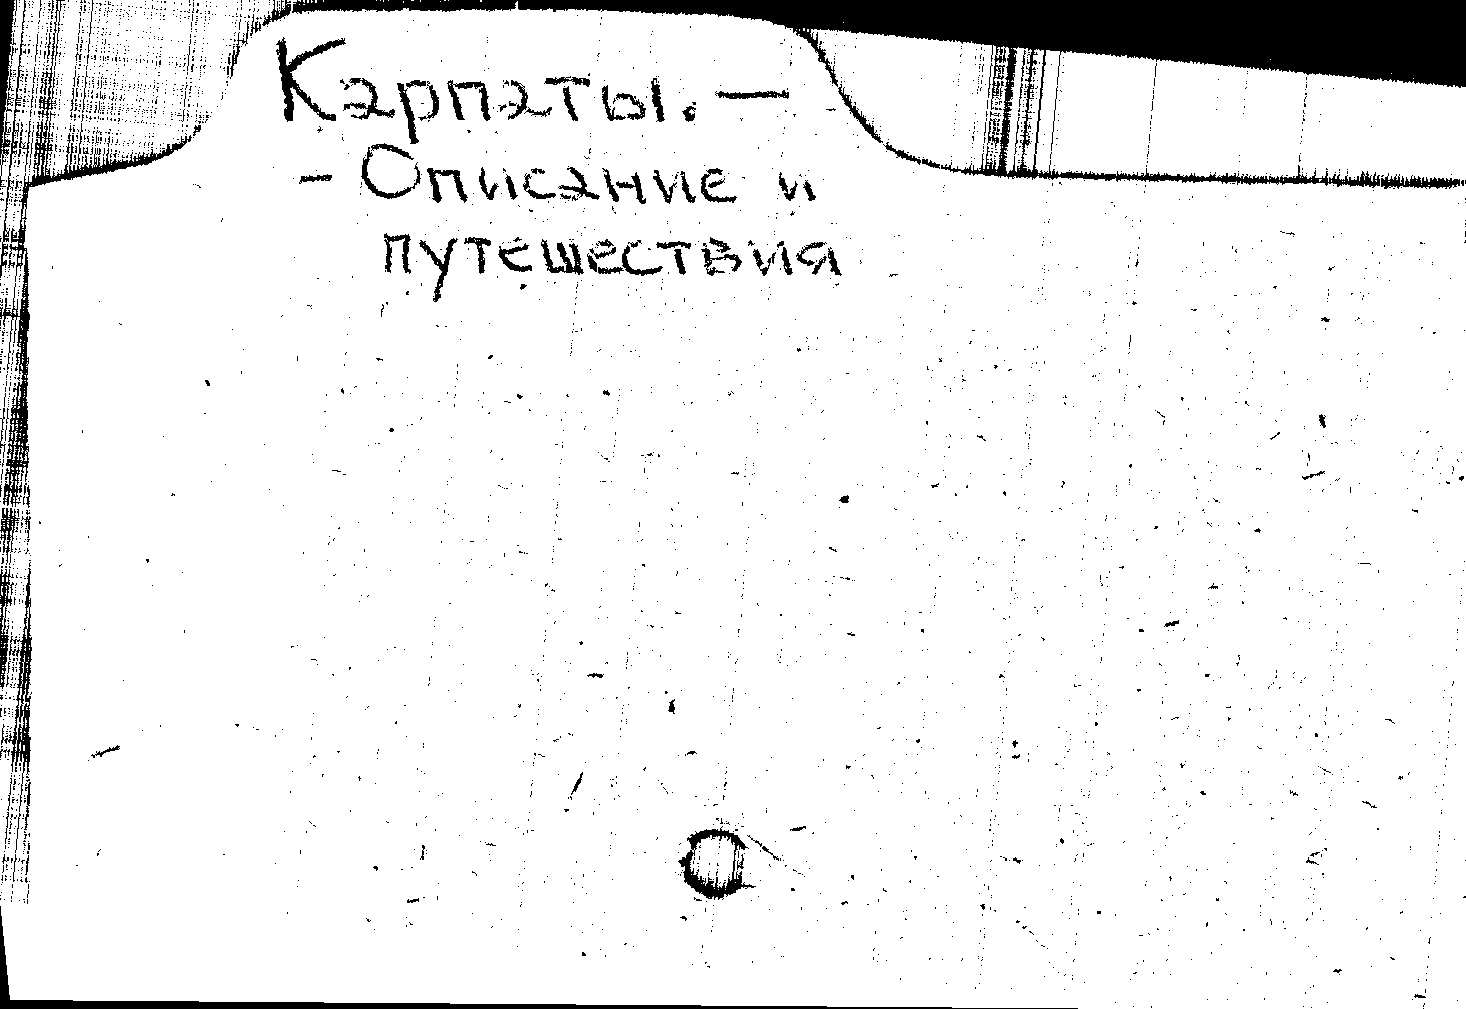 Карпаты. —
– Описание и
путешествия